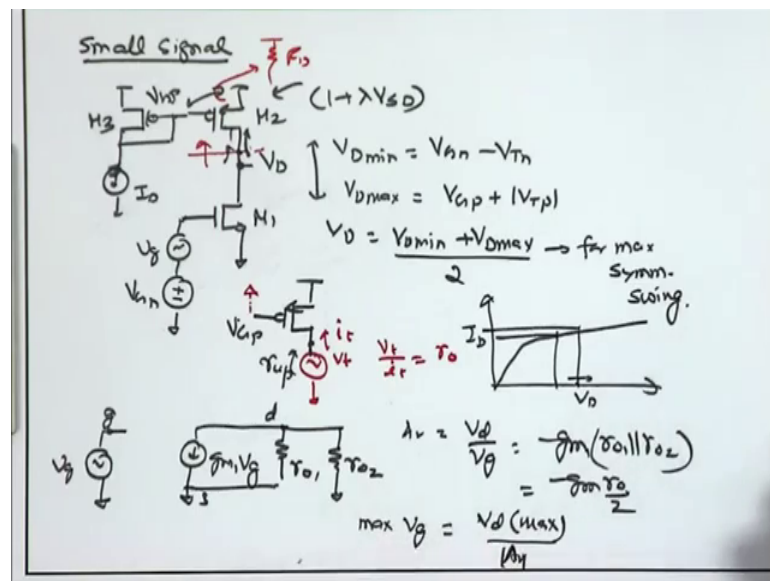 Small Signal
R_D
V_Gp
M3
M2
(1+λV_SD)
V_D
V_Dmin = V_Gn − V_Tn
V_Dmax = V_Gp + |V_Tp|
I_D
M1
V_D = (V_Dmin + V_Dmax)/2 → for max symm. swing.
V_g
V_Gn
V_Gp
i_t
r_up
v_t
v_t/i_t = r_o
I_D
V_D
g
d
V_g
g_m1 V_g
r_o1
r_o2
s
A_v = V_d/V_g = −g_m(r_o1||r_o2)
= −g_m r_o/2
max V_g = V_d(max)/|A_v|